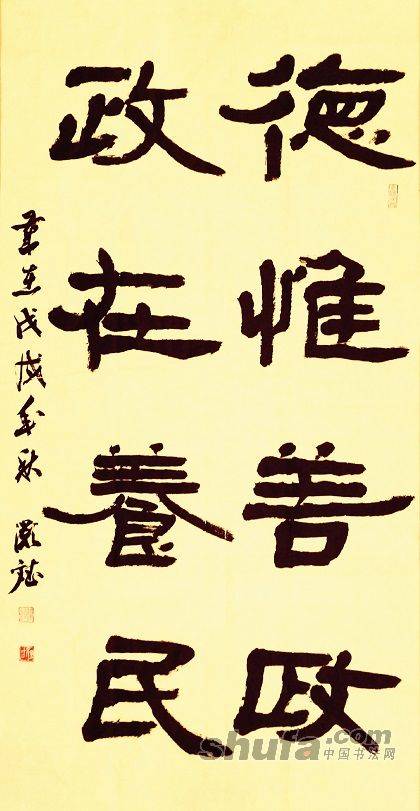 德惟善政
政在養民
戊戌年秋
shufa.com
中国书法网